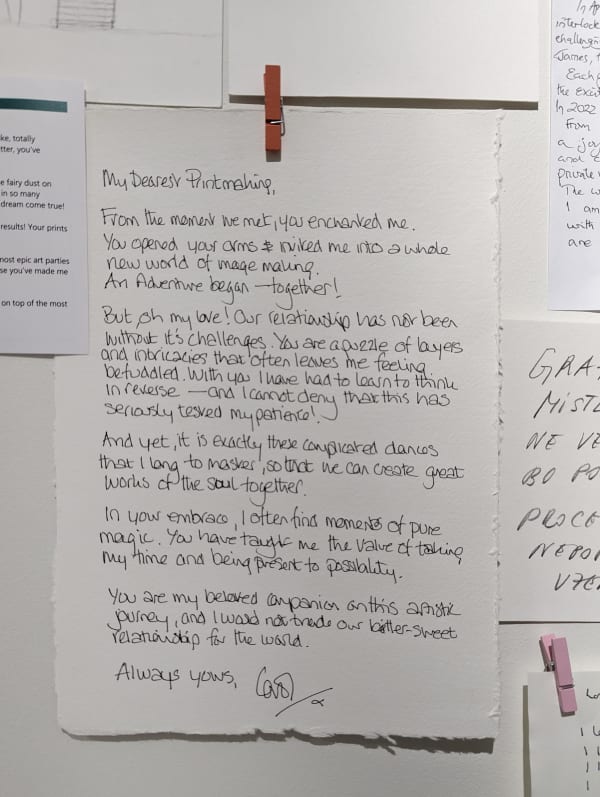 My Dearest Printmaking,
From the moment we met, you enchanted me.
You opened your arms & invited me into a whole
new world of image making.
An Adventure began — together!
But, oh my love! Our relationship has not been
without it's challenges. You are a puzzle of layers
and intricacies that often leaves me feeling
befuddled. With you I have had to learn to think
in reverse — and I cannot deny that this has
seriously tested my patience!
And yet, it is exactly these complicated dances
that I long to master, so that we can create great
works of the soul together.
In your embrace, I often find moments of pure
magic. You have taught me the value of taking
my time and being present to possibility.
You are my beloved companion on this artistic
journey, and I would not trade our bitter-sweet
relationship for the world.
Always yours,
ke, totally
tter, you've
e fairy dust on
in so many
dream come true!
results! Your prints
most epic art parties
se you've made me
on top of the most
In Ap
interlock
challengin
James, t
Each p
the exci
In 2022
From
a joy
and
private
The w
I am
with
are
GRA
MISTL
NE VE
BO PO
PROCE
NEPO
VZE